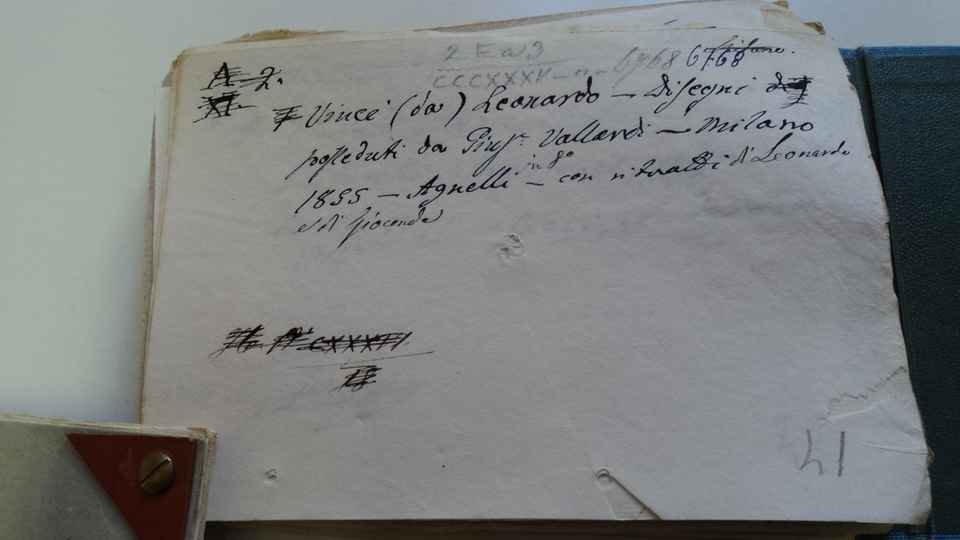 2 E a 3
CCCXXXII - n - 6768 6768
A - 2.
XI.
Vinci (da) Leonardo - Disegni
posseduti da Gius.e Vallardi - Milano
1855 - Agnelli - in 8o - con ritratti di Leonardo
e di Gioconda
CXXXII
41